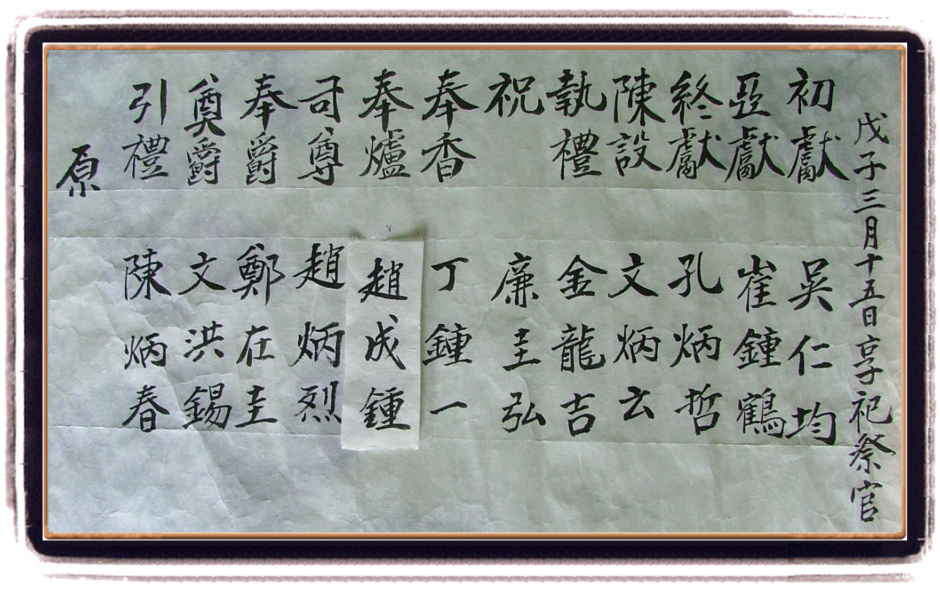 戊子三月十五日享祀祭官
初獻 吳仁均
亞獻 崔鍾鶴
終獻 孔炳哲
陳設 文炳云
執禮 金龍吉
祝 廉圭弘
奉香 丁鍾一
奉爐 趙成鍾
司尊 趙炳烈
奉爵 鄭在圭
奠爵 文洪錫
引禮 陳炳春
原